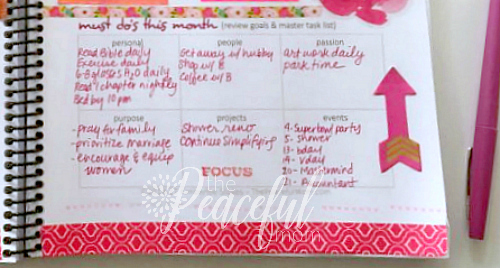 must do's this month (review goals & master task list)
personal
Read Bible daily
Exercise daily
6-8 glasses H2O daily
Read 1 chapter nightly
Bed by 10 pm
people
Get away w/ hubby
Shop w/ E
Coffee w/ B
passion
art work daily
park time
purpose
- pray for family
- prioritize marriage
- encourage & equip
women
projects
Shower reno
Continue Simplifying
FOCUS
events
4- Superbowl party
5- Shower
13- bday
14- Vday
20- Mastermind
21- Accountant
the
Peaceful
mom